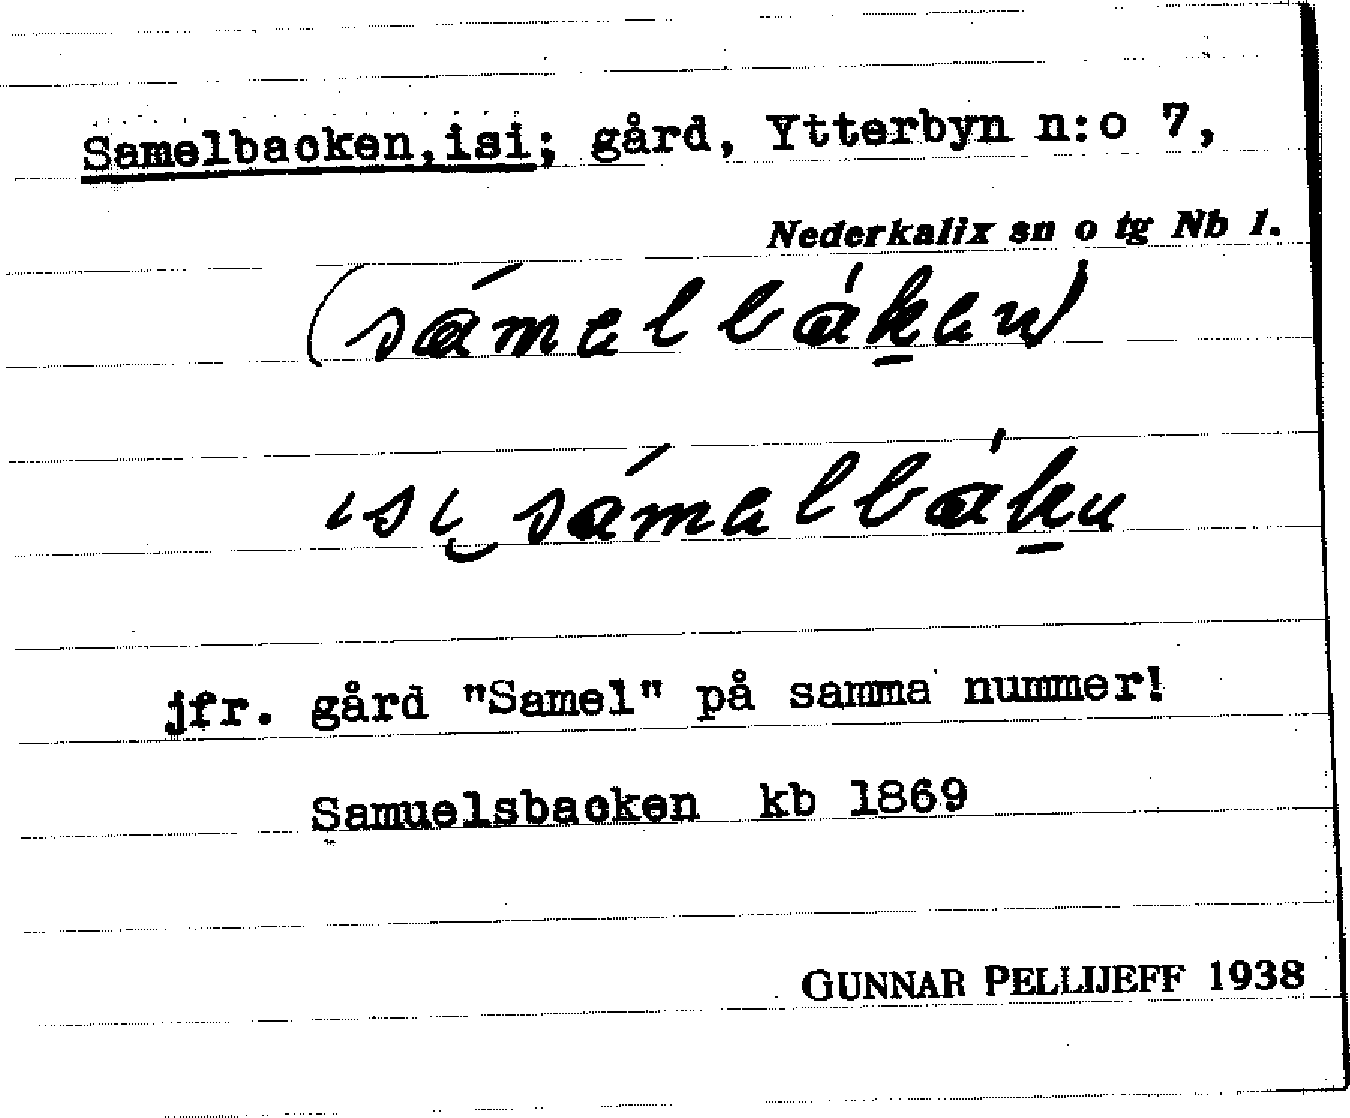 Samelbacken,isi; gård, Ytterbyn n:o 7,
Nederkalix sn o tg Nb 1.
(sámelbák̲en)
isi‿sámelbák̲u
jfr. gård "Samel" på samma nummer!
Samuelsbacken kb 1869
GUNNAR PELLIJEFF 1938